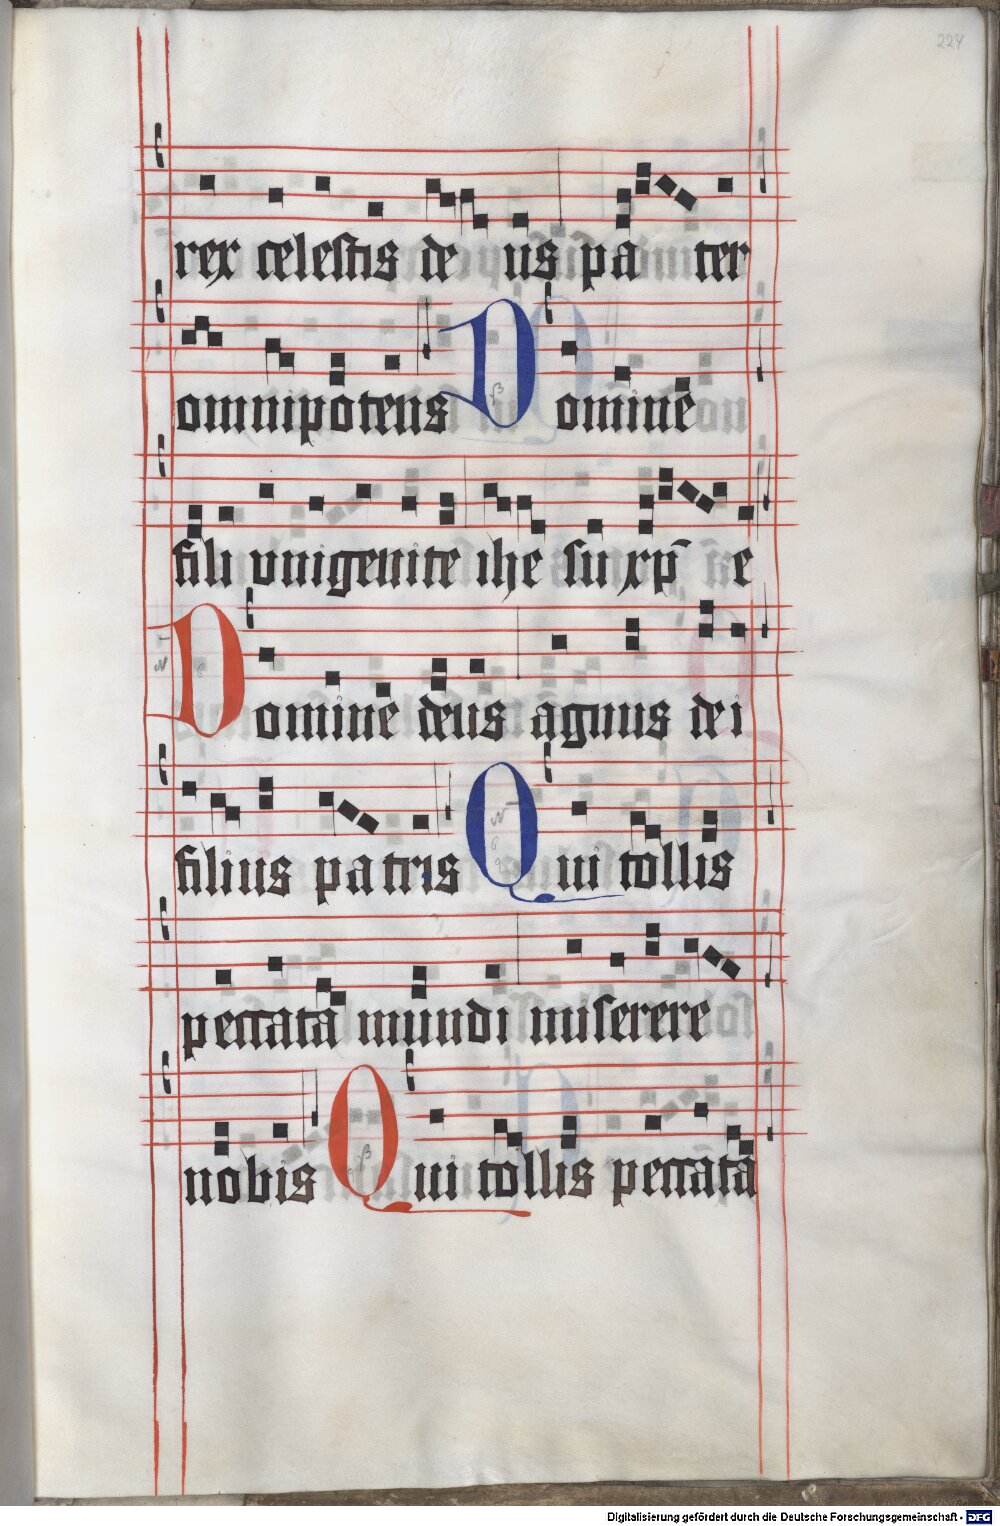 224
rex celestis de us pa ter
omnipotens Domine
fili vnigenite ihe su xp̄ e
Domine deus agnus dei
filius patris Qui tollis
peccata mundi miserere
nobis Qui tollis peccata
Digitalisierung gefördert durch die Deutsche Forschungsgemeinschaft - DFG